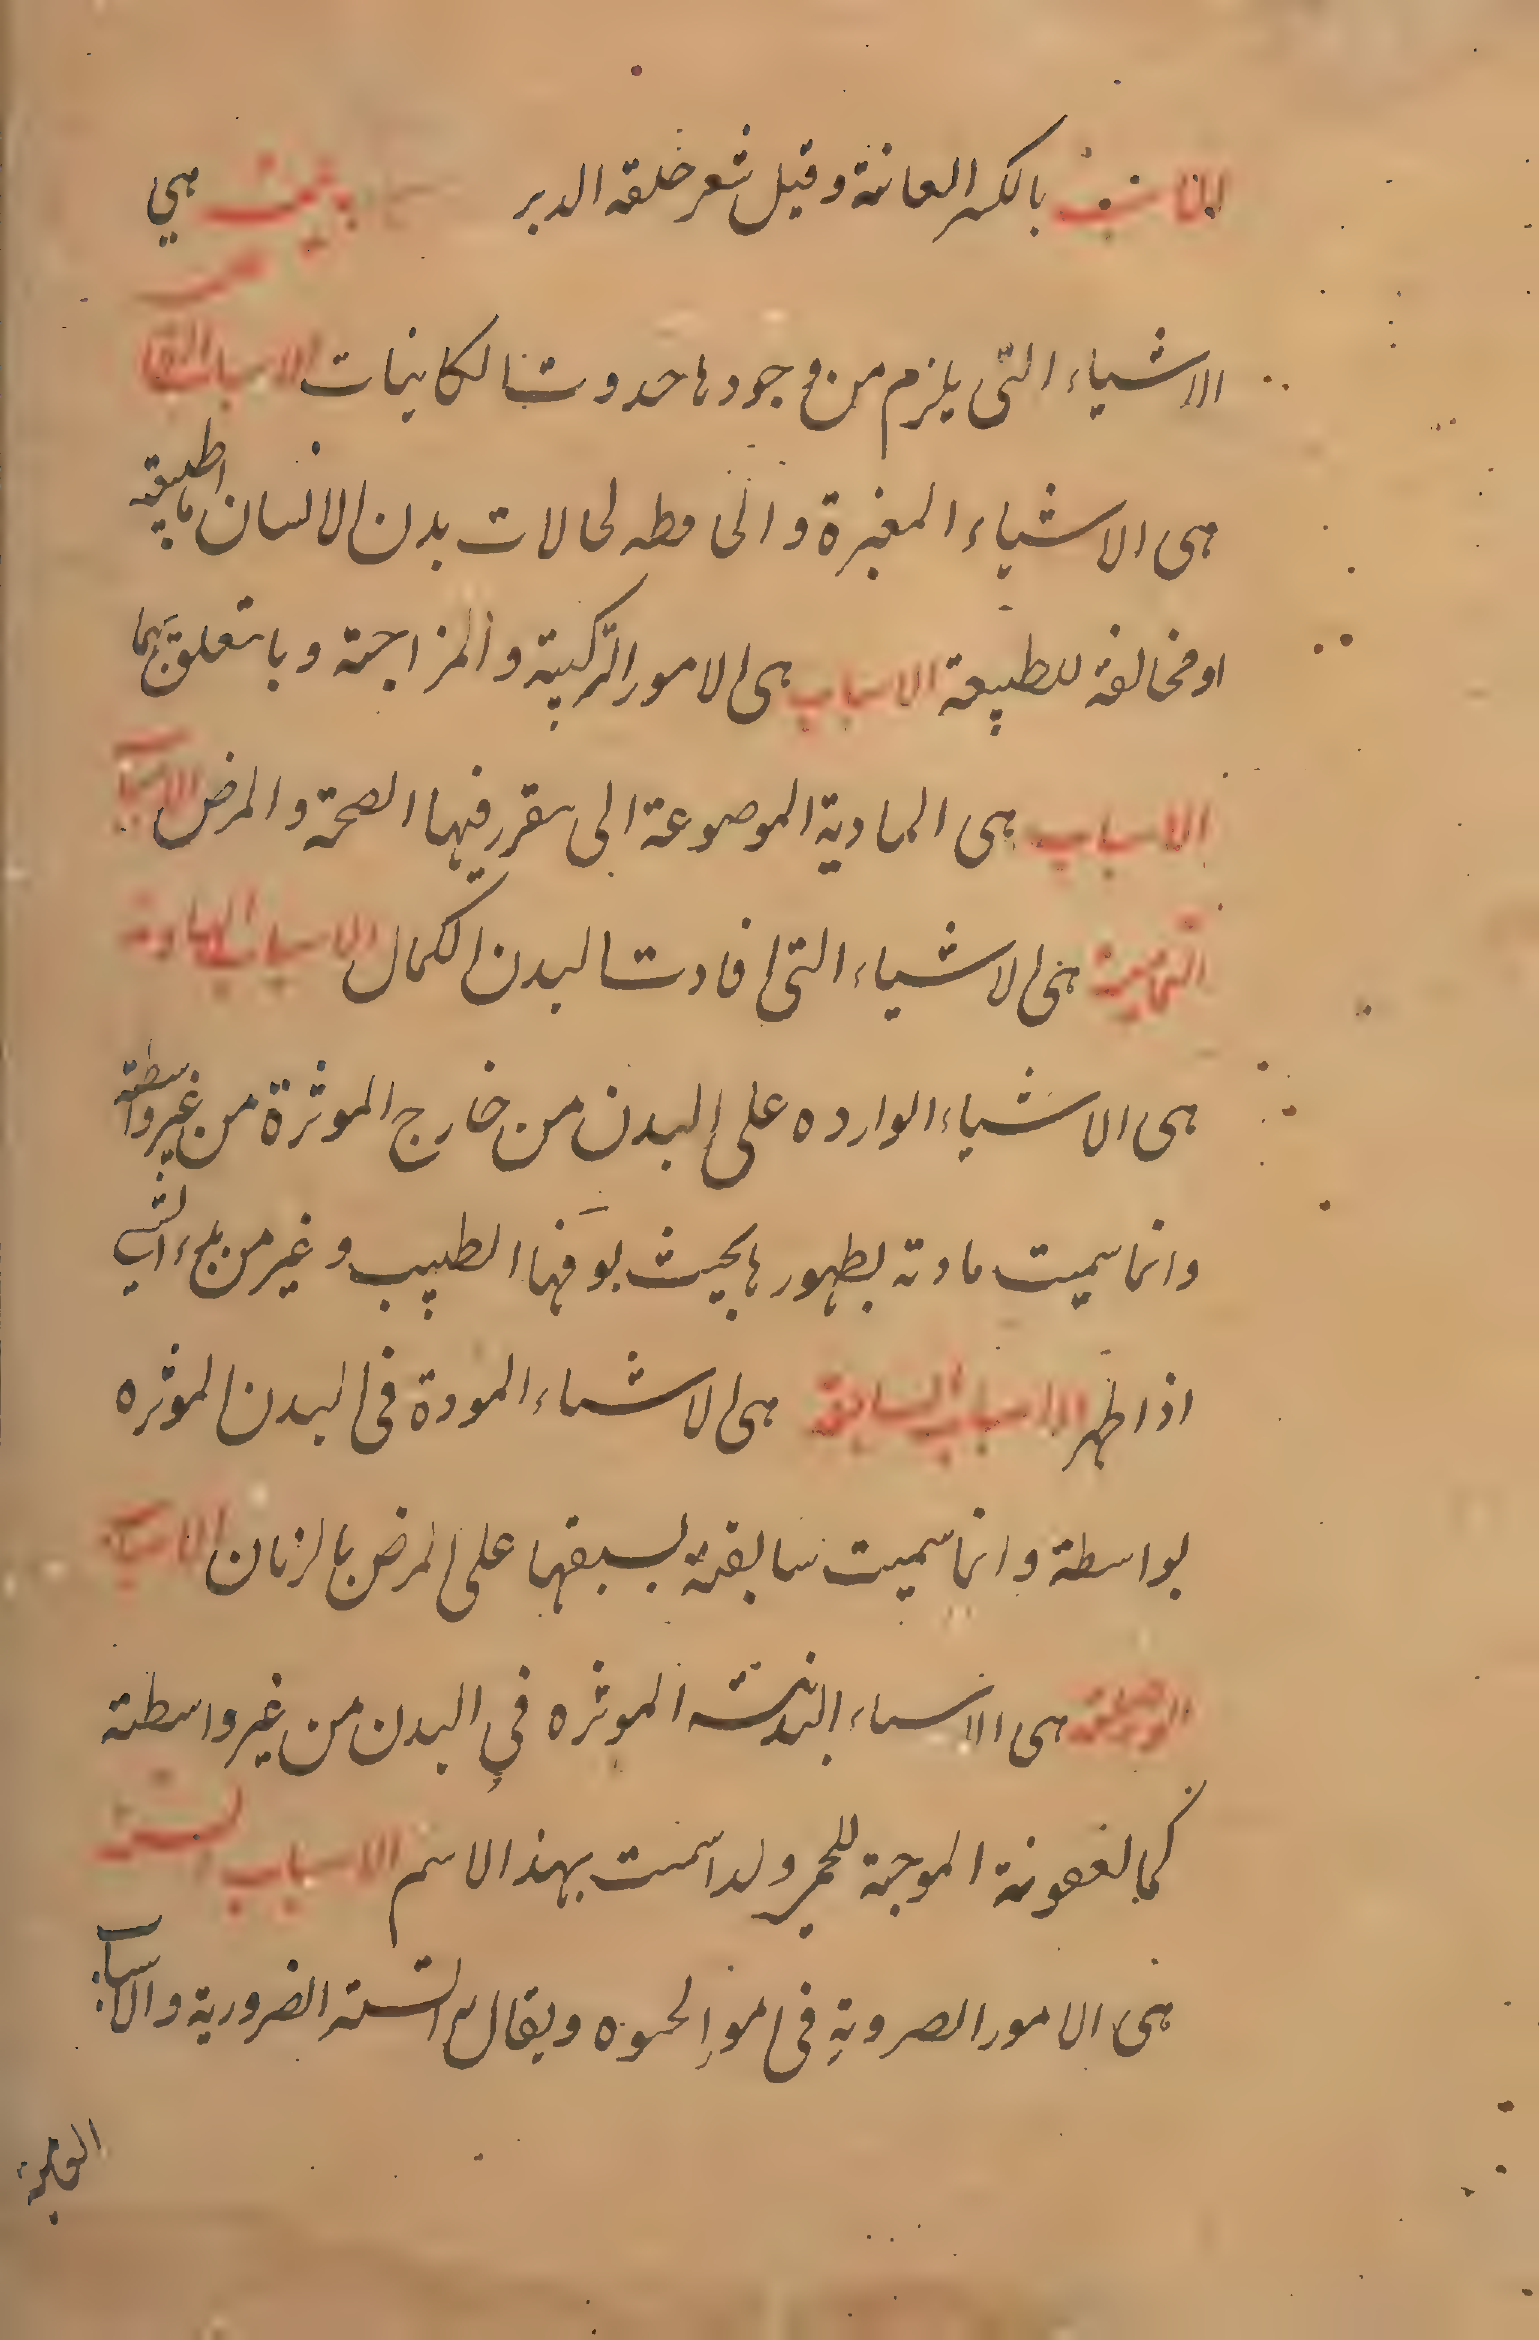 بالكسر العانة وقيل شعر حلقه الدبر هي
الاشياء التى يلزم من وجودها حدوث الكاينات الاسباب
هى الاشياء المغيرة والحافظه لحالات بدن الانسان
او مخالفة للطبيعة الاسباب هى الامور التركيبية والمزاجية وما يتعلق بهما
الاسباب هى المادية الموضوعة التى يتقرر فيها الصحة والمرض الاسباب
التمامية هى الاشياء التى افادت البدن الكمال الاسباب البادية
هى الاشياء الوارده على البدن من خارج الموثرة من غير واسطة
وانما سميت بادية لظهورها بحيث يوفها الطبيب وغير من بدء الشى
اذا ظهر الاسباب السابقة هى الاشياء المودة فى البدن الموثره
بواسطة وانما سميت سابقة لسبقها على المرض بالزمان الاسباب
الواصلة هى الاشياء البدنية الموثره في البدن من غير واسطة
كالعفونة الموجبة للحمى ولذا سميت بهذ الاسم الاسباب الستة
هى الامور الضرورية فى امر الحيوه ويقال الستة الضرورية والاسباب